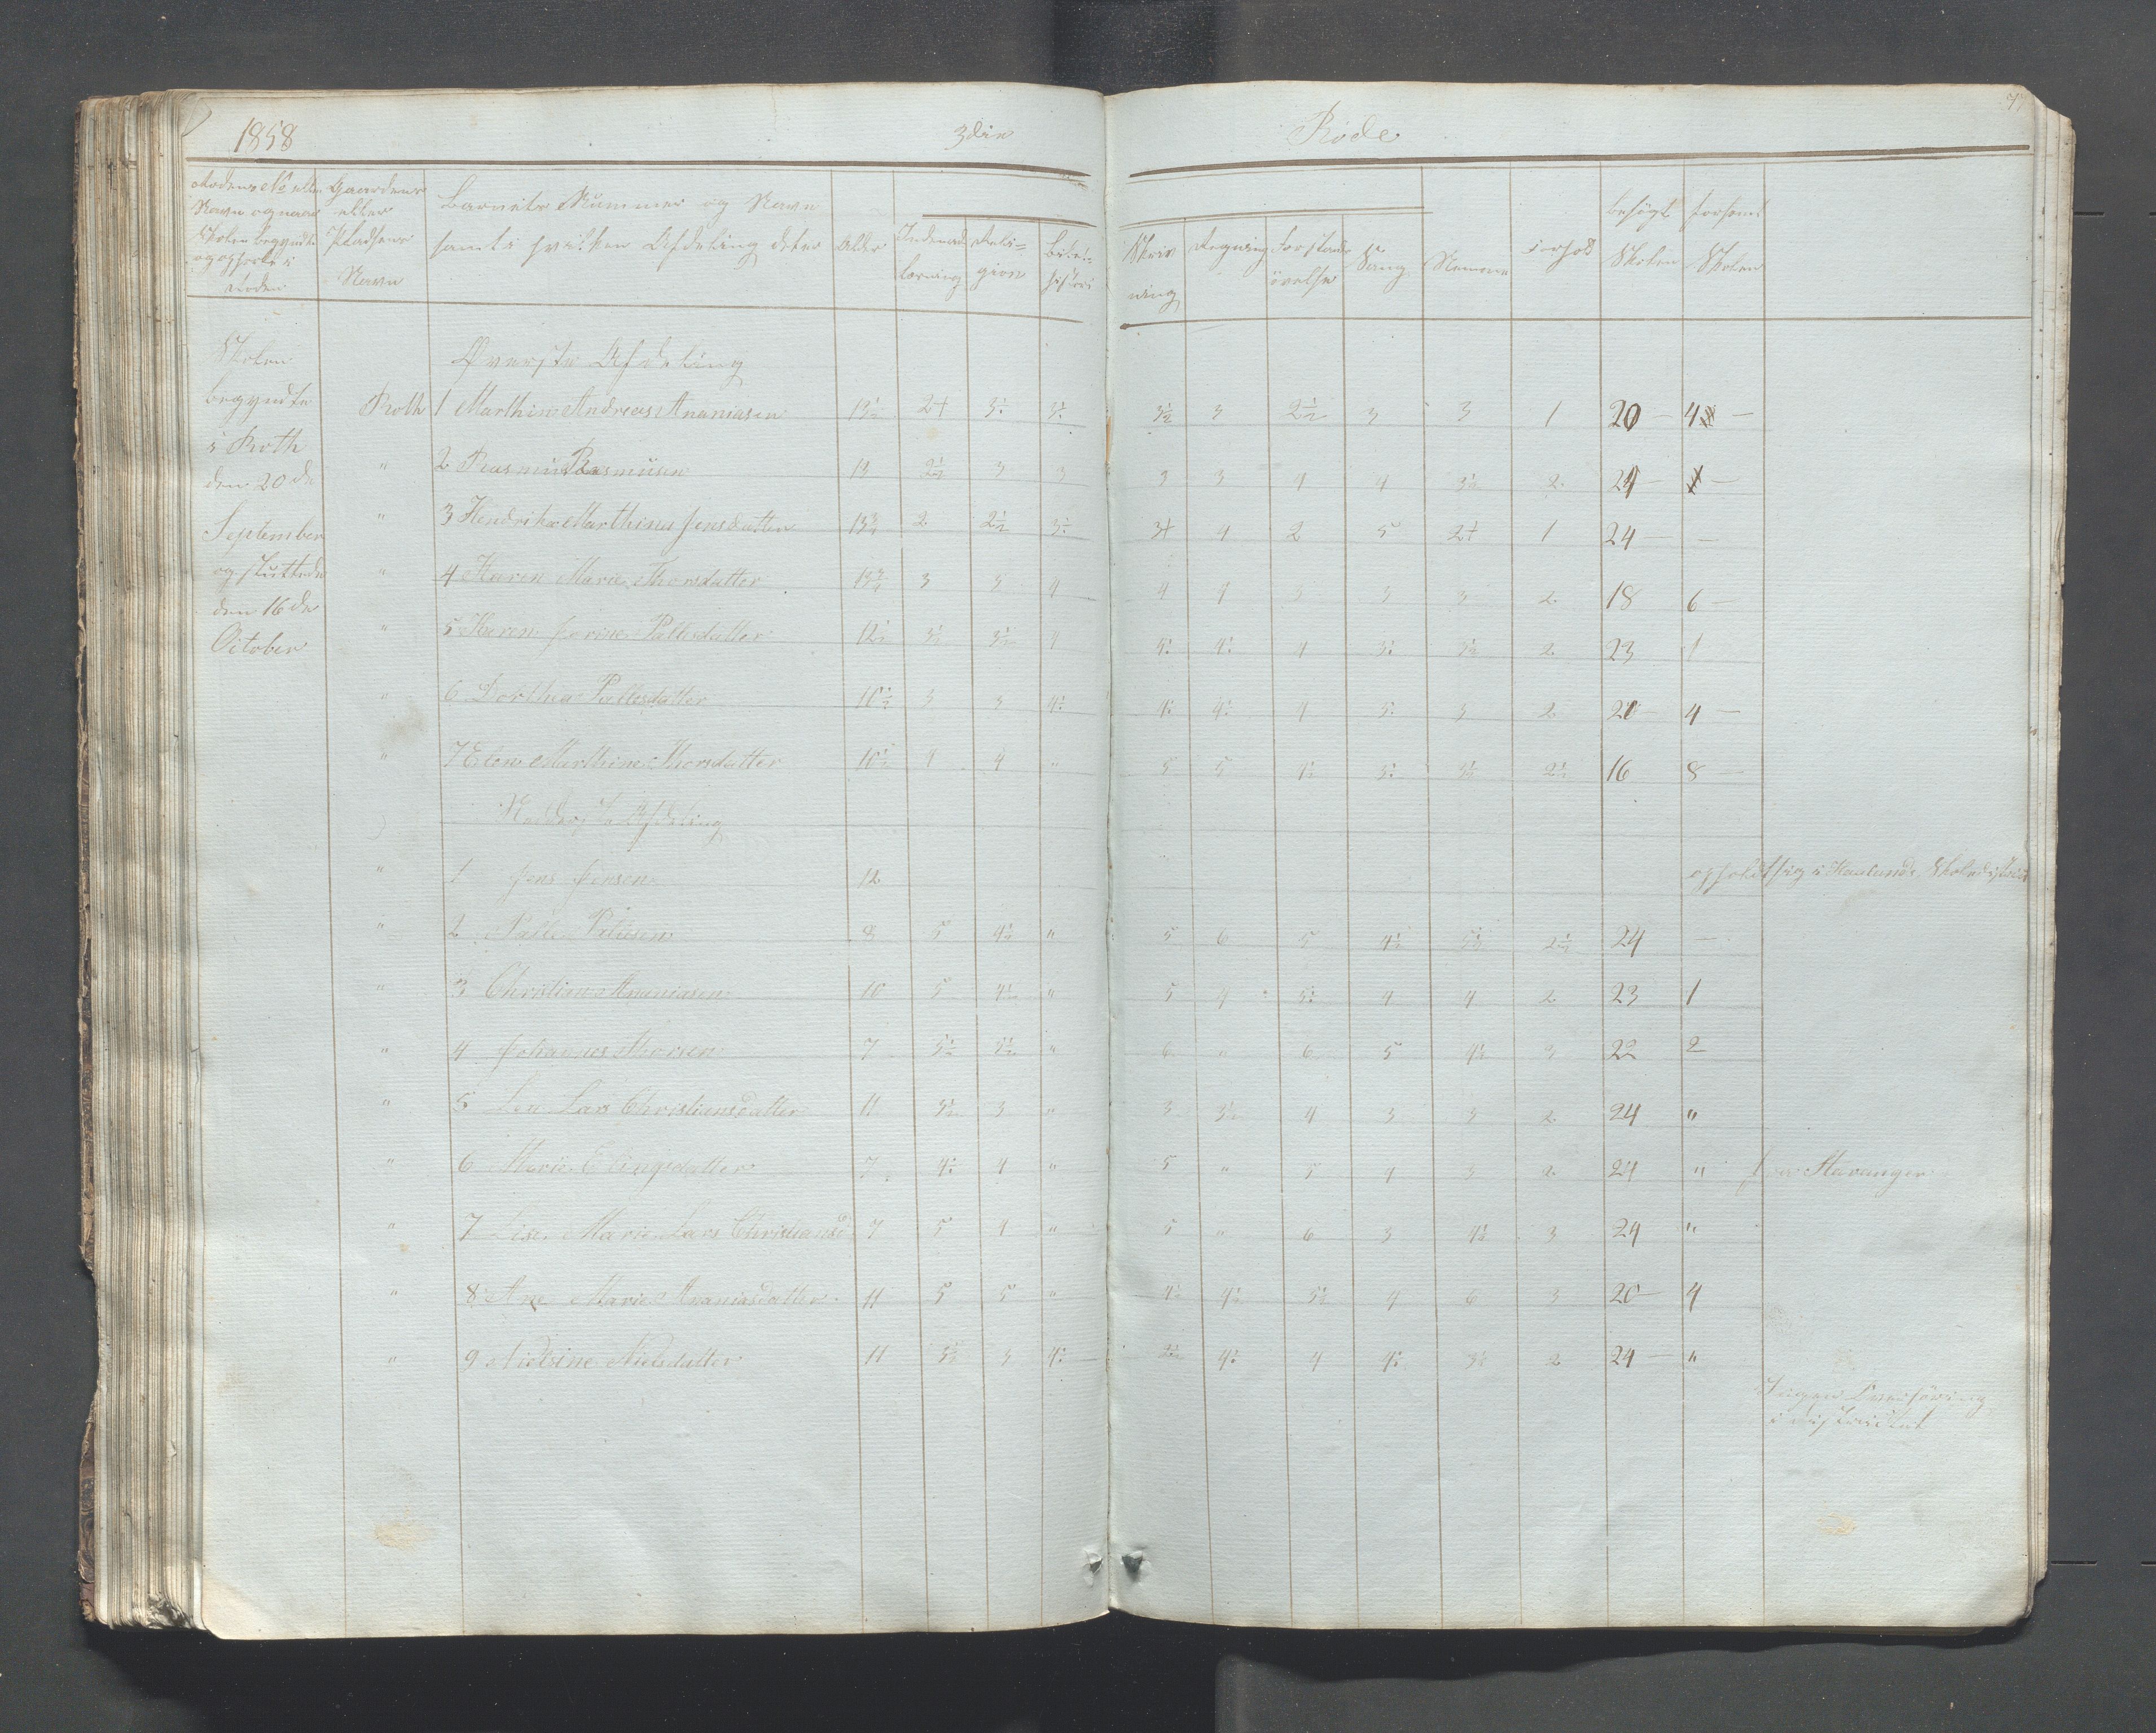 1858 3die Rode
Rodens No eller Navn og naar Skolen begyndte og ophørte i Roden
Gaardens eller Pladsens Navn
Barnets Nummer og Navn samt i hvilken Afdeling det er
Alder
Indenad læsning
Reli- gion
Bibel- historie
Skriv ning
Regning
Forstands øvelse
Sang
Nemme
Forhold
besøgt Skolen
forsømt Skolen
Skolen begyndte i Roth den 20de September og sluttede den 16de October
Øverste Afdeling
Roth 1 Marthin Andreas Ananiasen 13½ 2+ 3÷ 3÷ 3½ 3 2½ 3 3 1 20 — 4 —
" 2 Rasmus Rasmusen 13 2½ 3 3 3 3 4 4 3½ 2 24 — —
" 3 Hendrikke Marthine Jensdatter 13¾ 2 2½ 3÷ 3+ 4 2 5 2+ 1 24 — —
" 4 Karen Marie Thorsdatter 13¾ 3 3 4 4 4 3 3 3 2 18 6 —
" 5 Karen Jorine Pallesdatter 12½ 3½ 3½ 4 4÷ 4÷ 4 3÷ 3½ 2 23 1
" 6 Dorthea Pallesdatter 10½ 3 3 4÷ 4÷ 4÷ 4 5÷ 3 2 20 — 4 —
" 7 Elen Marthine Thorsdatter 10½ 4 4 " 5 5 4½ 5÷ 3½ 2½ 16 8 —
Nedderste Afdeling
" 1 Jens Jensen 12 opholdt sig i Haalands Skoledistrict
" 2 Palle Pallesen 8 5 4½ " 5 6 5 4½ 5½ 2½ 24 —
" 3 Christian Ananiasen 10 5 4½ " 5 4 5÷ 4 4 2 23 1
" 4 Johannes Thorsen 7 5½ 5½ " 6 " 6 5 4½ 3 22 2
" 5 Lea Lars Christiansdatter 11 3½ 3 " 3 3½ 4 3 3 2 24 "
" 6 Marie Elingsdatter 7 4÷ 4 " 5 " 5 4 3 2 24 " fra Stavanger
" 7 Lise Marie Lars Christiansd 7 5 4 " 5 " 6 3 4½ 3 24 "
" 8 Ane Marie Ananiasdatter 11 5 5 " 4½ 4½ 5½ 4 6 3 20 — 4
" 9 Nielsine Nielsdatter 11 3½ 3 4÷ 2½ 4÷ 4 4÷ 3½ 2 24 — "
Ingen
i districtet